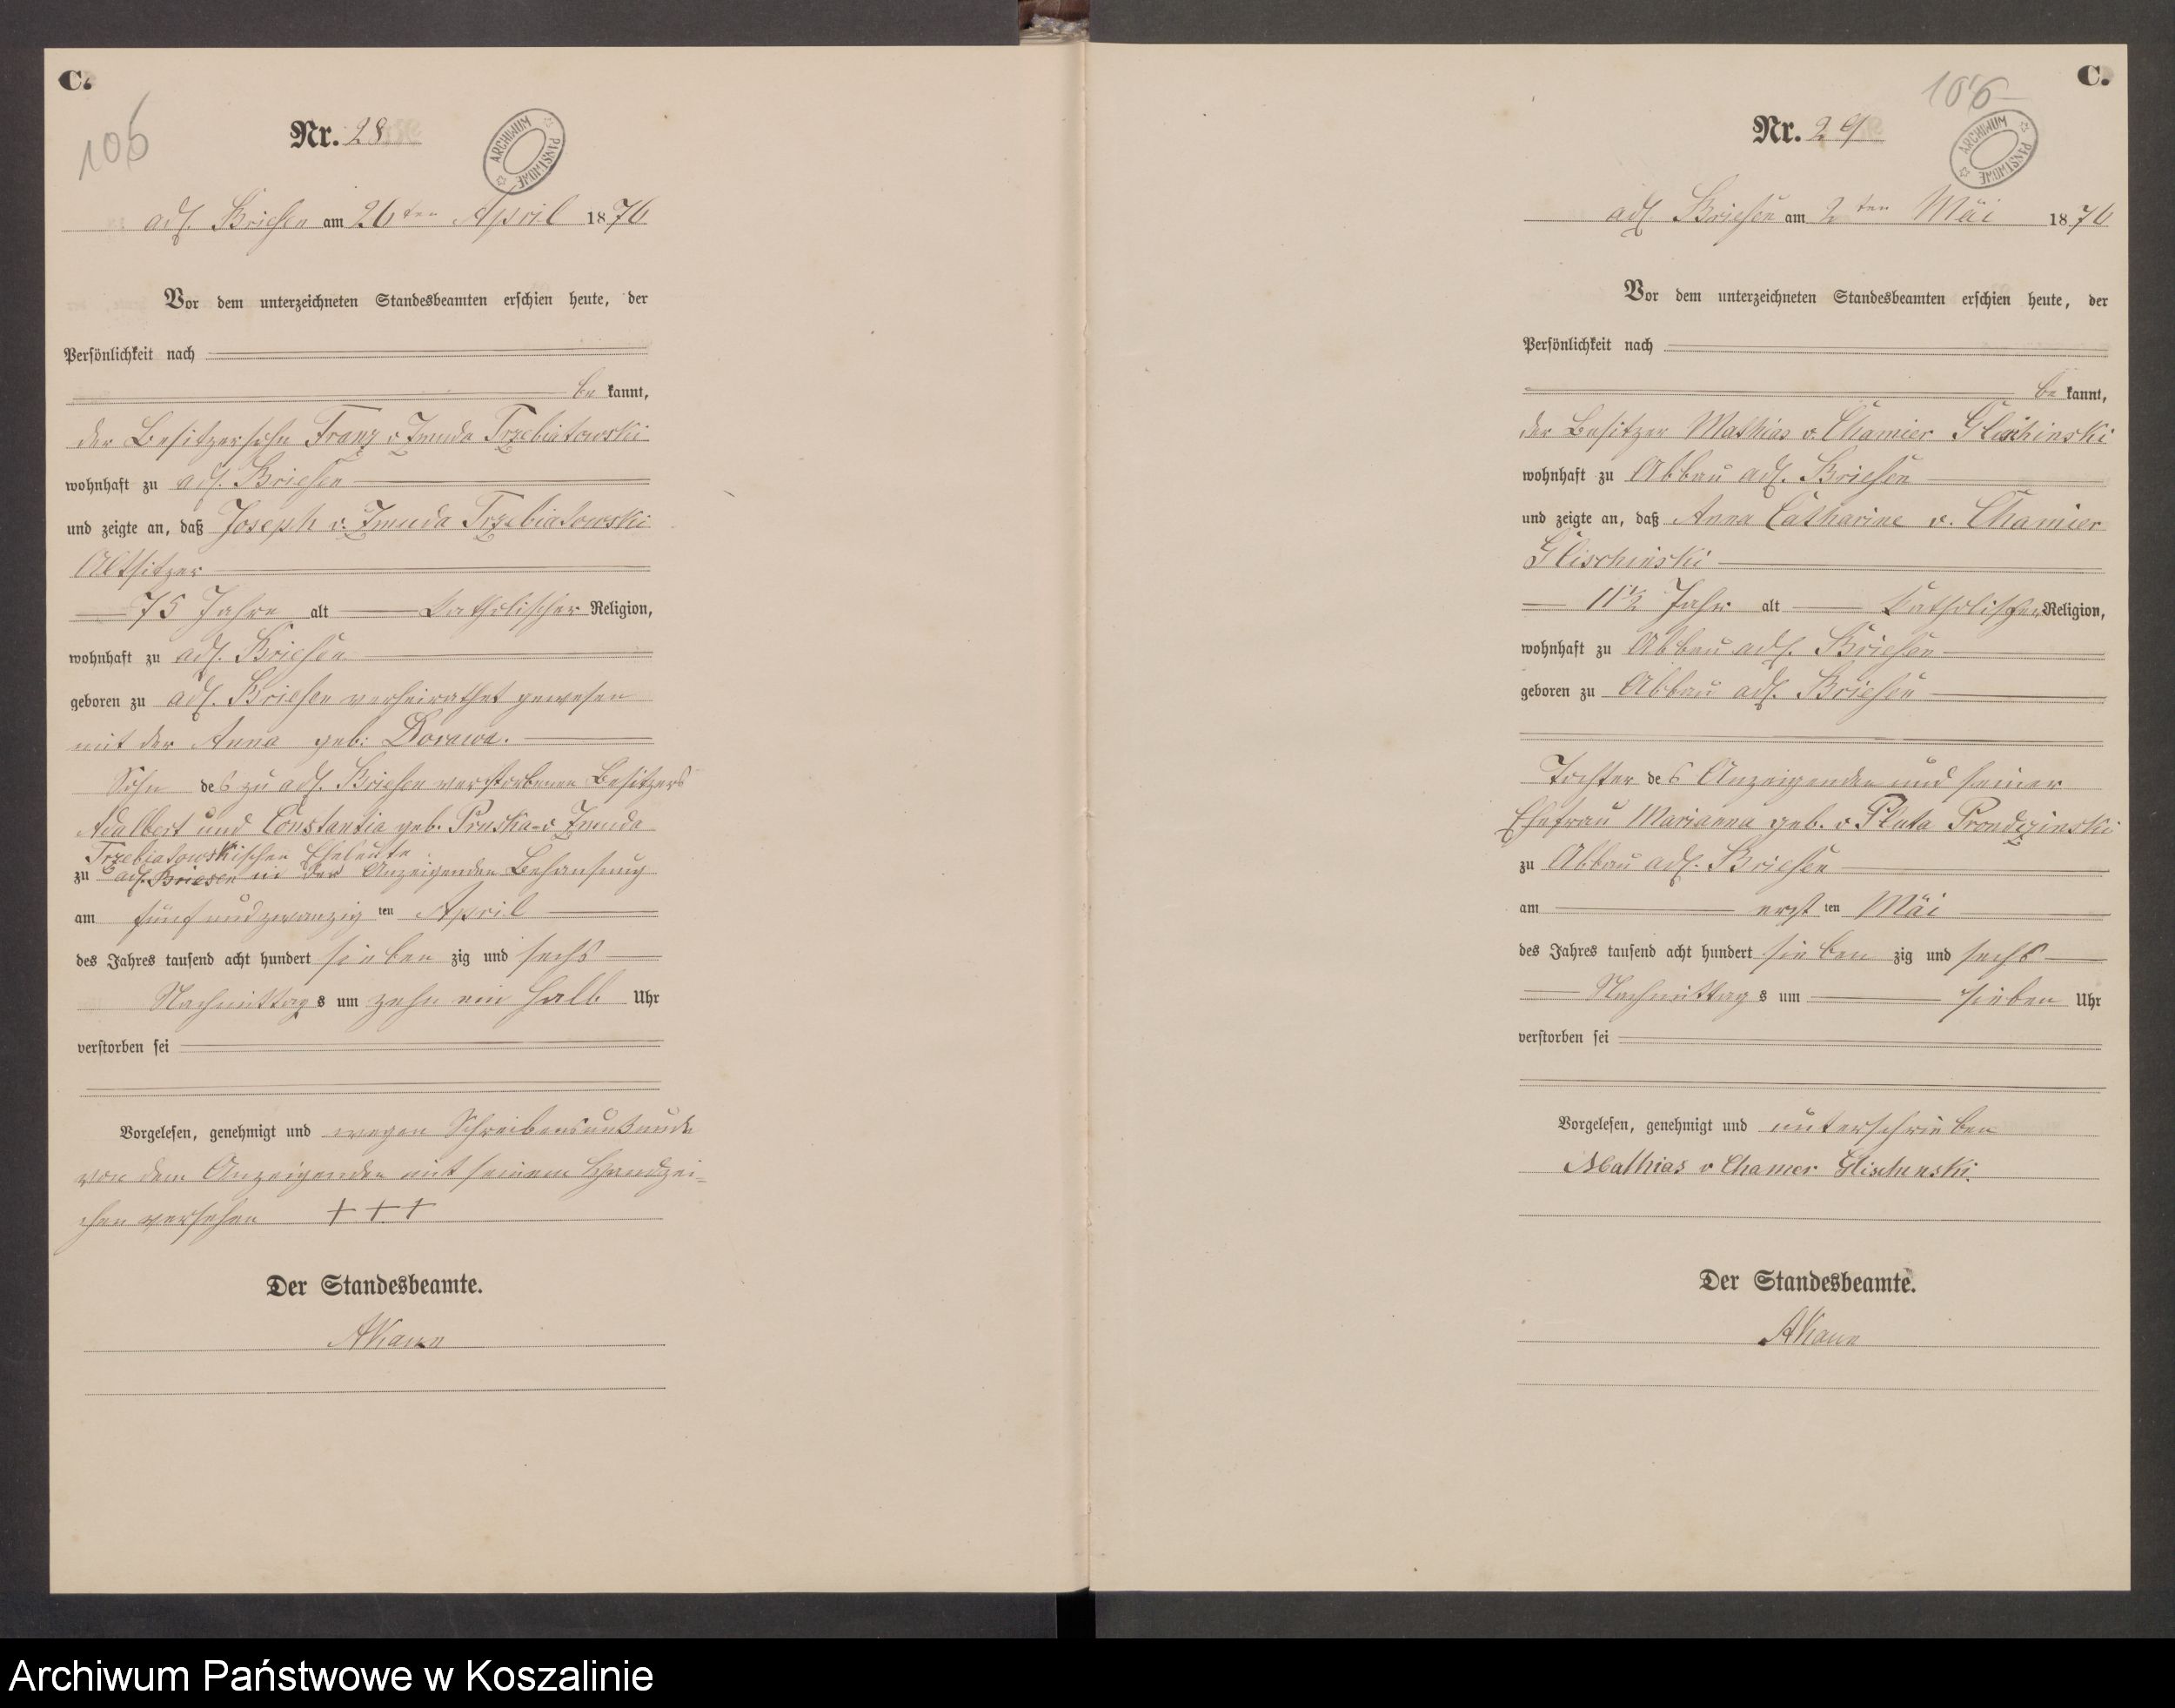 C.
105
Nr. 28
ARCHIWUM PAŃSTWOWE
adl. Briesen am 26ten April 1876
Vor dem unterzeichneten Standesbeamten erschien heute, der
Persönlichkeit nach
be kannt,
der Besitzersohn Franz v Zmuda Trzebiatowski
wohnhaft zu adl. Briesen
und zeigte an, daß Joseph v. Zmuda Trzebiatowski
Altsitzer
75 Jahre alt katholischer Religion,
wohnhaft zu adl. Briesen
geboren zu adl. Briesen verheirathet gewesen
mit der Anna geb: Dorawa.
Sohn des zu adl. Briesen verstorbenen Besitzers
Adalbert und Constantia geb. Pruska v Zmuda
Trzebiatowskischen Eheleute
zu adl. Briesen in der Anzeigenden Behausung
am fünf und zwanzig ten April
des Jahres tausend acht hundert sieben zig und sechs
Nachmittags um zehn ein halb Uhr
verstorben sei
Vorgelesen, genehmigt und wegen Schreibensunkunde
von dem Anzeigenden mit seinem Handzei-
chen versehen + + +
Der Standesbeamte.
C.
106
Nr. 29
ARCHIWUM PAŃSTWOWE
adl Briesen am 2ten Mai 1876
Vor dem unterzeichneten Standesbeamten erschien heute, der
Persönlichkeit nach
be kannt,
der Besitzer Mathias v. Chamier Glischinski
wohnhaft zu Abbau adl. Briesen
und zeigte an, daß Anna Catharine v. Chamier
Glischinski
11 1/2 Jahr alt katholischer Religion,
wohnhaft zu Abbau adl. Briesen
geboren zu Abbau adl. Briesen
Tochter des Anzeigenden und seiner
Ehefrau Marianna geb. v Pluta Prondzinski
zu Abbau adl. Briesen
am erst ten Mai
des Jahres tausend acht hundert sieben zig und sechs
Nachmittags um sieben Uhr
verstorben sei
Vorgelesen, genehmigt und unterschrieben
Mathias v Chamier Glischinski.
Der Standesbeamte.
Archiwum Państwowe w Koszalinie